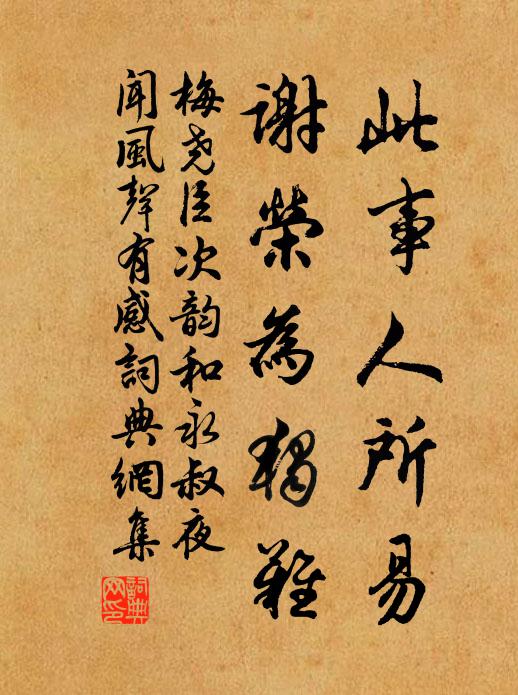 此事人所易
謝榮為獨難
梅堯臣次韵和永叔夜
聞風聲有感詞典網集
詞典网印